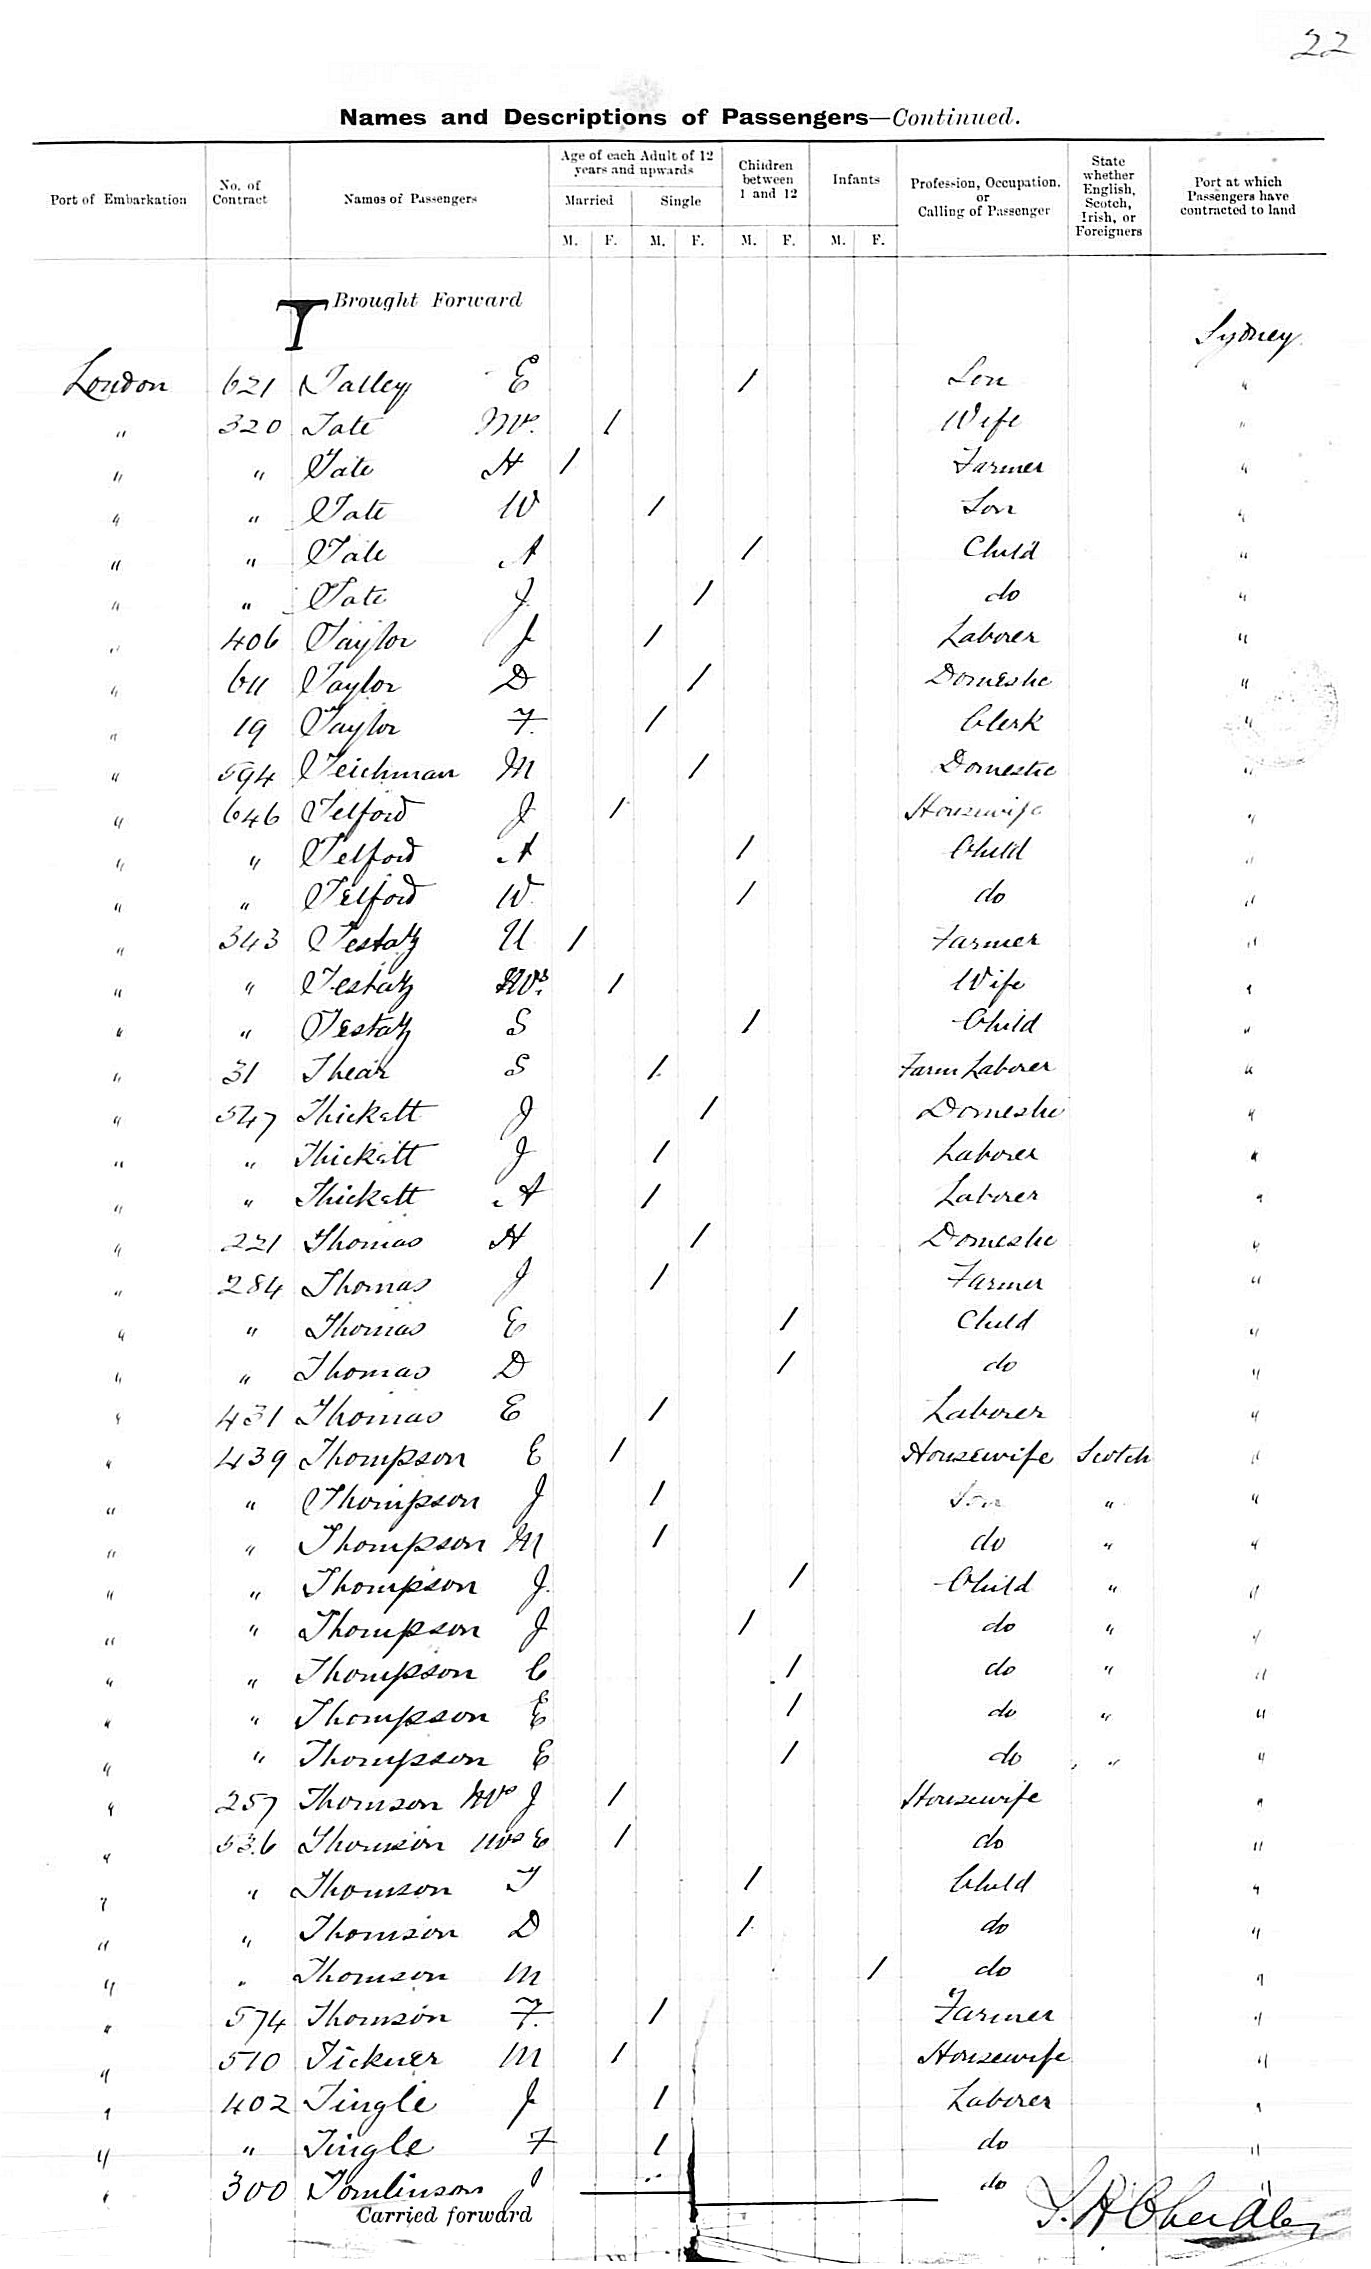 22
Names and Descriptions of Passengers—Continued.
Port of Embarkation No. of Contract Names of Passengers Age of each Adult of 12 years and upwards Married M. F. Single M. F. Children between 1 and 12 M. F. Infants M. F. Profession, Occupation, or Calling of Passenger State whether English, Scotch, Irish, or Foreigners Port at which Passengers have contracted to land
T Brought Forward
Sydney
London 621 Talley E 1 Son "
" 320 Tate Mrs. 1 Wife "
" " Tate H 1 Farmer "
" " Tate W 1 Son "
" " Tate A 1 Child "
" " Tate J 1 do "
" 406 Taylor J 1 Laborer "
" 611 Taylor D 1 Domestic "
" 19 Taylor F. 1 Clerk "
" 594 Teichman M 1 Domestic "
" 646 Telford J 1 Housewife "
" " Telford A 1 Child "
" " Telford W. 1 do "
" 343 Testatz U 1 Farmer "
" " Testatz Mrs. 1 Wife "
" " Testatz S 1 Child "
" 31 Thear S 1 Farm Laborer "
" 547 Thickett J 1 Domestic "
" " Thickett J 1 Laborer "
" " Thickett A 1 Laborer "
" 221 Thomas H 1 Domestic "
" 284 Thomas J 1 Farmer "
" " Thomas E 1 Child "
" " Thomas D 1 do "
" 431 Thomas E 1 Laborer "
" 439 Thompson E 1 Housewife Scotch "
" " Thompson J 1 Son " "
" " Thompson M 1 do " "
" " Thompson J. 1 Child " "
" " Thompson J 1 do " "
" " Thompson C 1 do " "
" " Thompson E 1 do " "
" " Thompson E 1 do " "
" 257 Thomson Mrs J 1 Housewife "
" 536 Thomson Mrs E 1 do "
" " Thomson T 1 Child "
" " Thomson D 1 do "
" " Thomson M 1 do "
" 574 Thomson F. 1 Farmer "
" 510 Tickner M 1 Housewife "
" 402 Tingle J 1 Laborer "
" " Tingle F 1 do "
" 300 Tomlinson J do "
Carried forward